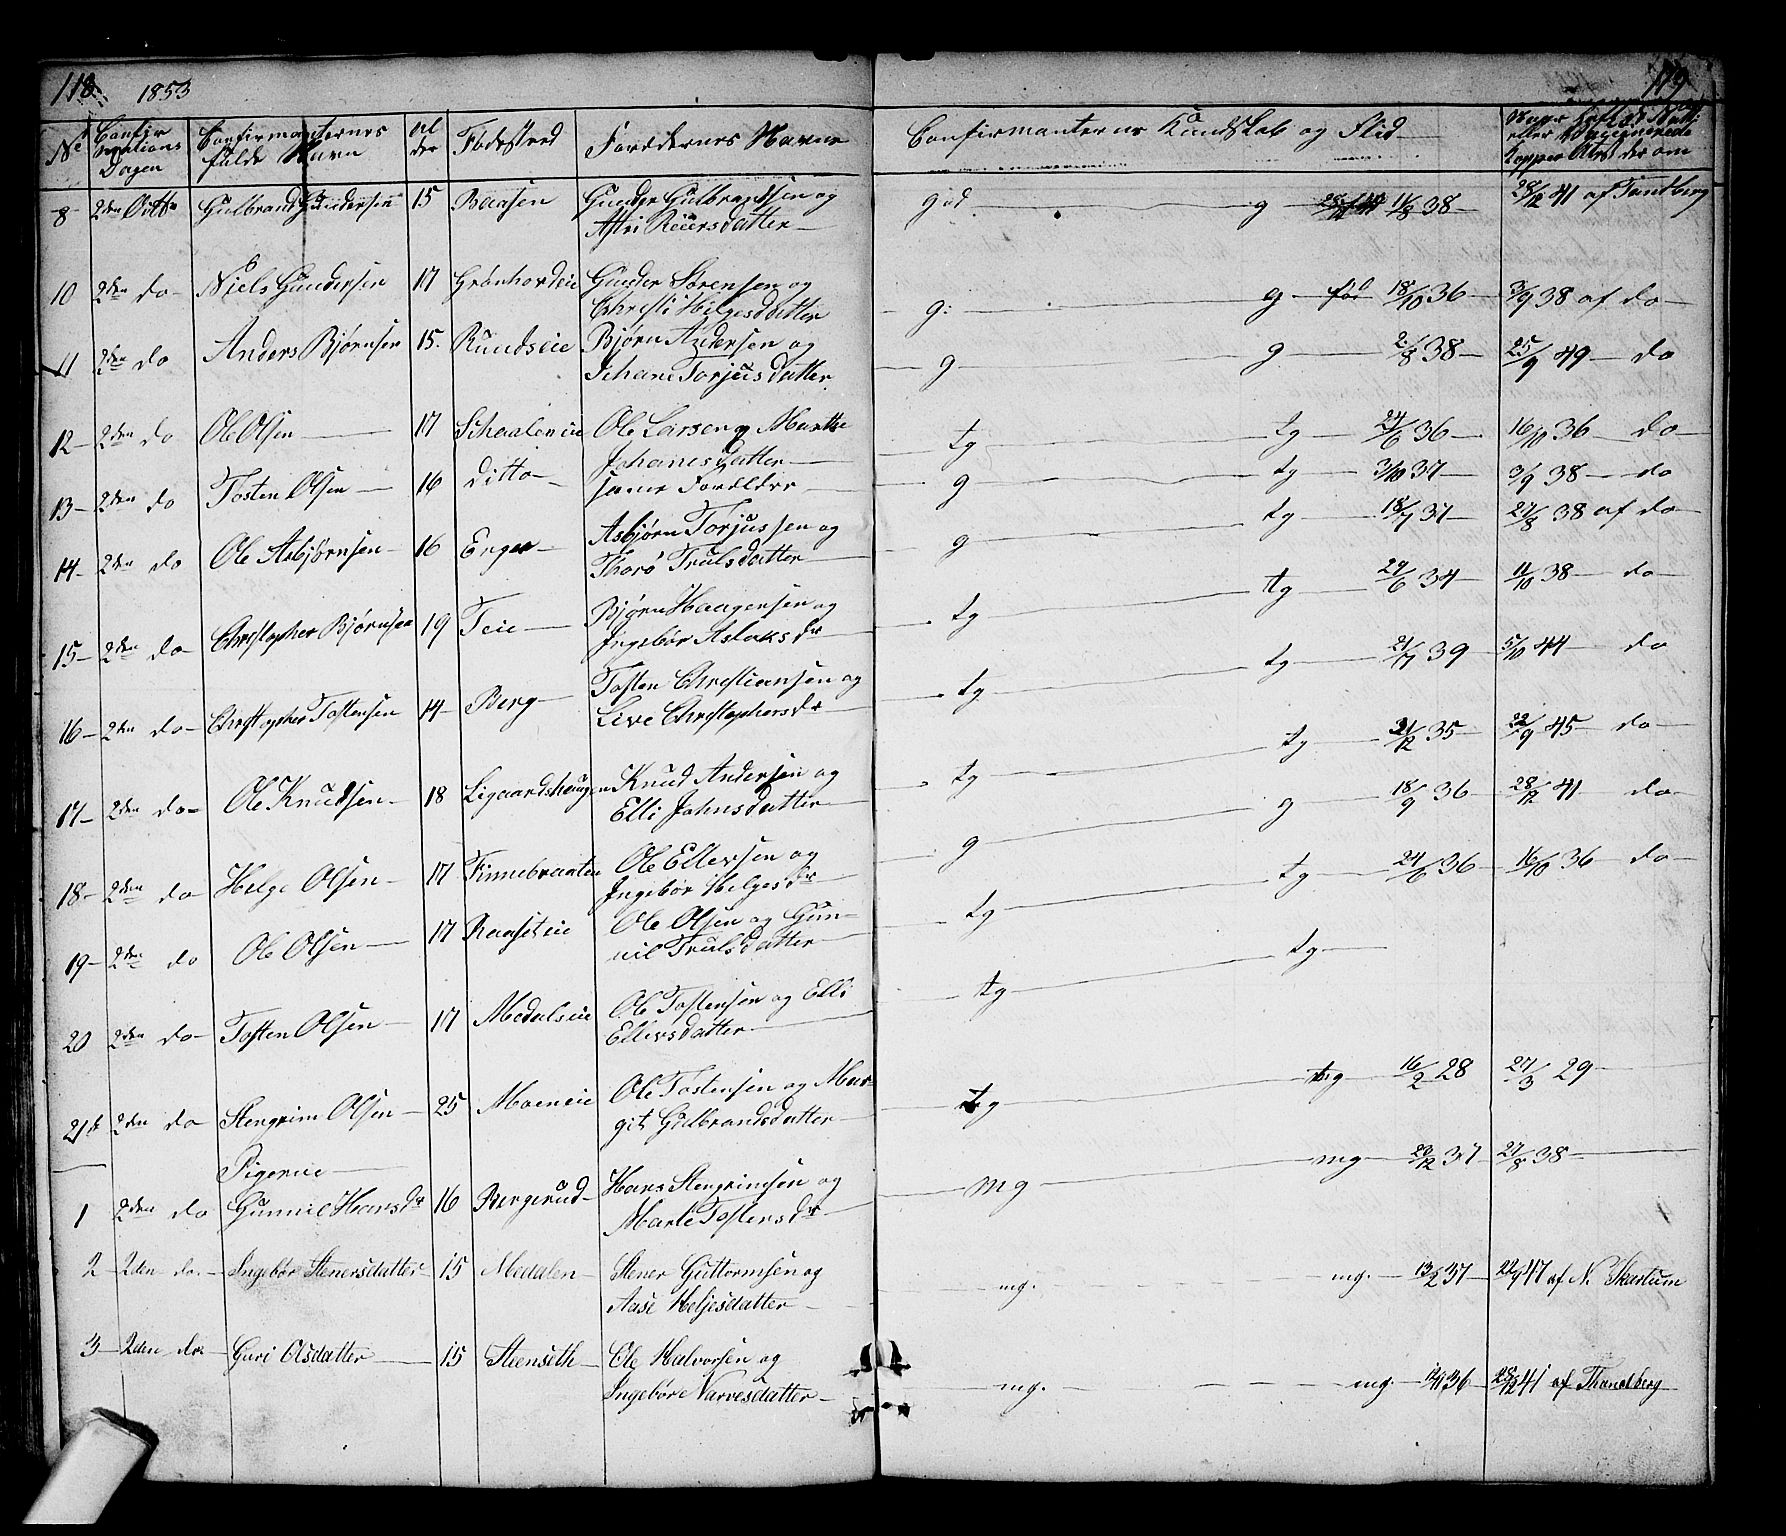 118 1853 119
No Confirmations Dagen Confirmanternes fulde Navn Alder Fødested Forældernes Navne Confirmanternes Kundskab og Flid
8 2den Ditto Gulbrand Gundersen 15 Baasen Gunder Gulbrandsen og god g 11/8 38 28/12 41 af Tandberg
Astri Reiersdatter
10 2den do Niels Gundersen 17 Grønhordeie Gunder Sørensen og g: g fød 18/10 36 3/9 38 af do
Christi Helgesdatter
11 2den do Anders Bjørnsen 15. Rundseie Bjørn Andersen og g g 2/8 38 25/9 49 do
Johane Torjusdatter
12 2den do Ole Olsen 17 Schaaleneie Ole Larsen og Marthe tg tg 24/6 36 16/10 36 do
Johanesdatter
13 2den do Tosten Olsen 16 ditto same Forældre g tg 3/10 37 3/9 38 do
14 2den do Ole Asbjørnsen 16 Enger Asbjørn Torjussen og g tg 18/7 37 27/8 38 af do
Thorø Trulsdatter
15 2den do Christopher Bjørnsen 19 Teie Bjørn Haagensen og tg tg 24/6 34 11/10 38 do
Ingebør Aslaksdr
16 2den do Christopher Tostensen 14 Berg Tosten Christiansen og tg tg 21/7 39 5/10 44 do
Live Christophersdr
17 2den do Ole Knudsen 18 Ligaardshaugen Knud Andersen og tg tg 21/12 35 22/9 45 do
Elli Johnsdatter
18 2den do Helge Olsen 17 Finnebraaten Ole Ellevsen og g g 18/9 36 28/12 41 do
Ingebør Helgesdr
19 2den do Ole Olsen 17 Raasteie Ole Olsen og Gun- tg tg 24/6 36 16/10 36 do
nil Trulsdatter
20 2den do Tosten Olsen 17 Medalseie Ole Tostensen og Elli tg tg
Ellevsdatter
21 2den do Stengrim Olsen 25 Moeneie Ole Tostensen og Mar- tg tg 16/2 28 27/3 29
git Gulbrandsdatter
Pigerne
1 2den do Gunnil Hansdr 16 Bergerud Hans Stengrimsen og mg mg 20/12 37 27/8 38
Marte Tostensdr
2 2den do. Ingebør Stenersdatter 15 Medalen Stener Guttormsen og mg. mg. 13/2 37 22/9 47 af N. Skartum
Aase Heljesdatter
3 2den do. Guri Olsdatter 15 Steenseth Ole Halvorsen og mg. mg. 12/11 36 28/12 41 af Thandberg
Ingebør Narvesdatter